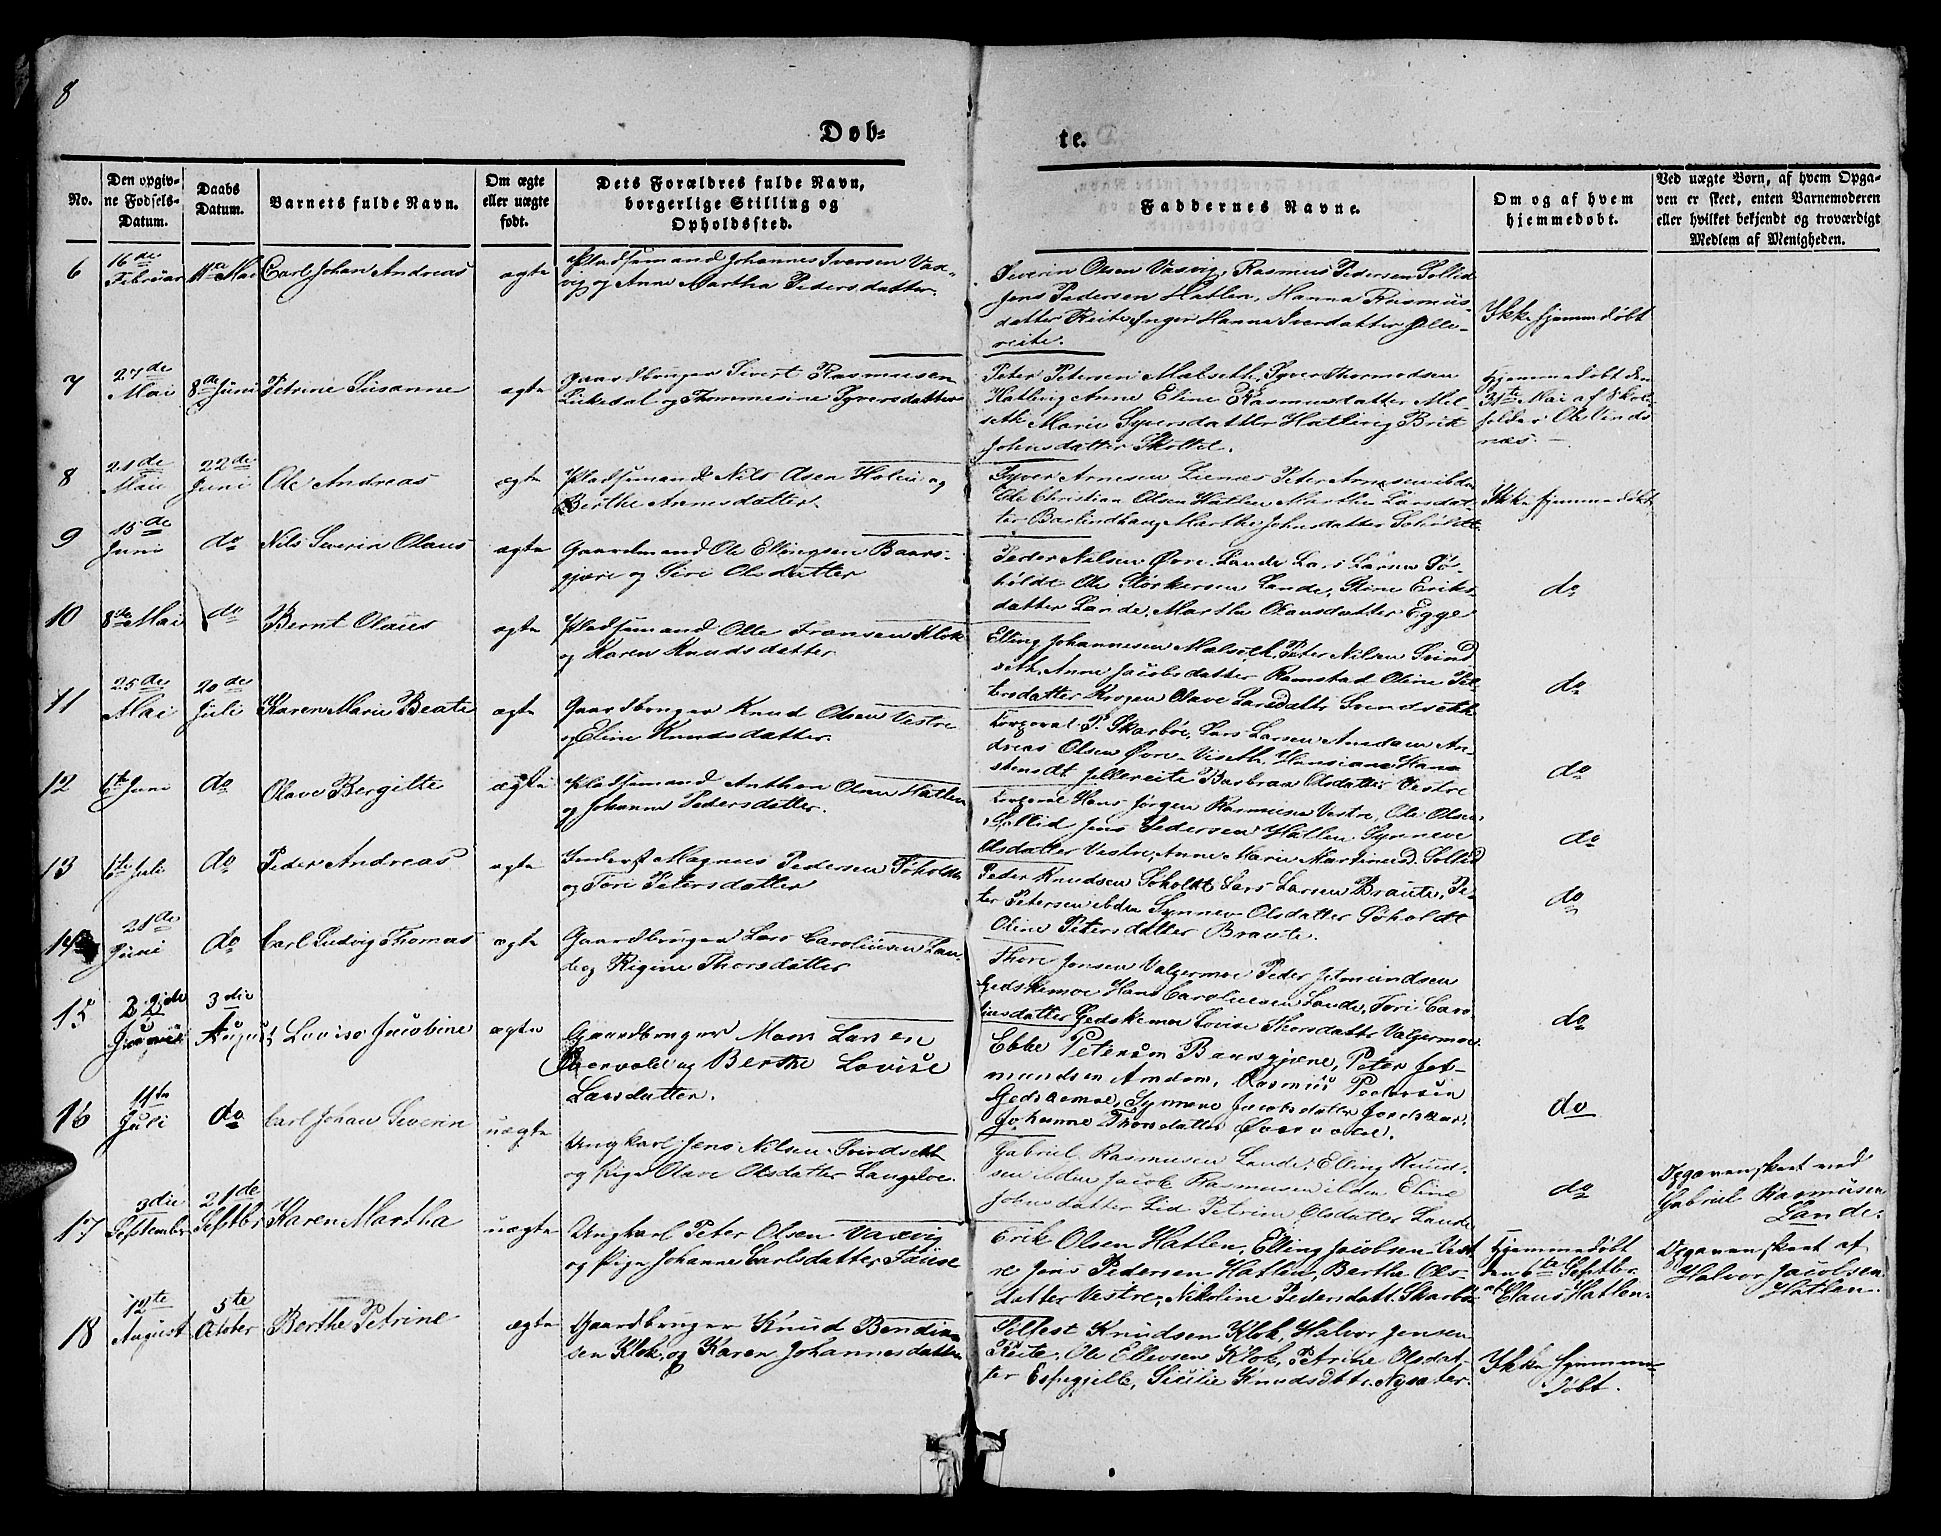 8
Døb-
te.
No.
Den opgiv-
ne Fødsels-
Datum.
Daabs
Datum.
Barnets fulde Navn.
Om ægte
eller uægte
født.
Dets Forældres fulde Navn,
borgerlige Stilling og
Opholdssted.
Faddernes Navne.
Om og af hvem
hjemmedøbt.
Ved uægte Børn, af hvem Opga-
ven er skeet, enten Barnemoderen
eller hvilket bekjendt og troværdigt
Medlem af Menigheden.
6
16de
Februar
11te Mai
Carl Johan Andreas
ægte
Pladsemand Johannes Iversen Vax-
vig og Anne Martha Pedersdatter.
Severin Olsen Vaxvig, Rasmus Pedersen Sollid
Jens Pedersen Hatlen, Hanna Rasmus
datter Reite, Inger Hanna Iversdatter Jelle-
reite.
Ikke hjemmedøbt
7
27de
Mai
8de Juni
Petrine Susanne
ægte
Gaardbruger Sivert Rasmusen
og Thommesine Syversdatter
Peter Petersen Malseth, Syver Thormodsen
Hatling Anne Eline Rasmusdatter Mel-
seth Marie Syversdatter Hatling Brit
Johnsdatter Skottel.
Hjemmedøbt den
31te Mai af Skole-
holder Ole Vinds
næs.
8
21de
Mai
22de
Juni
Ole Andreas
ægte
Pladsemand Nils Olsen Holen og
Berthe Arnesdatter.
Syver Arnesen Lienæs Peter Arnesen ibdm
Ole Christian Olsen Hatlen Marthe Larsdat-
ter Barlindhaug Marthe Johnsdatter Søholdt
Ikke hjemmedøbt
9
15de
Juni
do
Nils Severin Olaus
ægte
Gaardmand Ole Ellingsen Baars-
gjære og Siri Olsdatter
Peder Nilsen Øvre-Lande Lars Larsen Sø-
holdt Ole Størkersen Lande, Stine Eriks
datter Lande, Marthe Olausdatter Egge
do
10
8de Mai
do
Bernt Olaus
ægte
Pladsemand Olte Fransen Klok
og Karen Knudsdatter
Elling Johannesen Malseth, Peter Nilsen Svind
seth, Anne Jacobsdatter Ramstad Oline Pe-
tersdatter Krogen Olave Larsdattr Svindseth
do
11
25de
Mai
20de
Juli
Karen Marie Beate
ægte
Gaardbruger Knud Olsen Vestre
og Eline Knudsdatter.
Korporal P. Skarbøe, Lars Larsen Amdam An-
dreas Olsen Øvre-Viseth Hansiane Hans
datt Jellereite Barbraa Olsdatter Vestre
do
12
6te Juni
do
Olave Bergitte
ægte
Pladsemand Anthon Olsen Hatlen
og Johanne Pedersdatter.
Korporal Hans Jørgen Rasmusen Vestre, Ole Olsen
Sollid Jens Pedersen Hatlen Synneve
Olsdatter Vestre, Anne Marie Martinusd. Sollid
do
13
6te Juli
do
Peder Andreas
ægte
Inderst Magnus Pedersen Søholdt
og Tori Petersdatter
Peder Knudsen Søholdt Lars Larsen Braute, Pe-
ter Petersen ibdm Synnev Olsdatter Søholdt
Oline Petersdatter Braute.
do
14
21de
Juni
do
Carl Ludvig Thomas
ægte
Gaardbruger Lars Caroliusen Lan-
de og Rigine Thorsdatter
Thore Jensen Valgermoe Peder Jetmundsen
Gedskemoe Hans Caroliusen Lande, Tori Caro-
liusdatter Gedskemoe Lovise Thorsdattr Valgermoe
do
15
22de
3die
August
Lovise Jacobine
ægte
Gaardbruger Mons Larsen
Overvold og Berthe Lovise
Larsdatter.
Ebbe Petersen Baarsgjære, Peter Jet-
mundsen Amdam, Rasmus Pedersen
Gedskemoe, Synneve Jacobsdatter
Johanne Thorsdatter Overvold.
do
16
11te
Juli
do
Carl Johan Severin
uægte
Ungkarl Jens Nilsen Svindseth
og Pige Olave Olsdatter Langeloe.
Gabriel Rasmusen Lande, Elling Knud-
sen ibdm Jacob Rasmusen ibdm Eline
Johnsdatter Lid Petrine Olsdatter Lande
do
Opgaven skeet ved
Gabriel Rasmusen
Lande.
17
3die
September
21de
Septbr
Karen Martha
uægte
Ungkarl Peter Olsen Vaxvig
og Pige Johanne Carlsdatter
Erik Olsen Hatlen, Elling Jacobsen Vest
re Jens Pedersen Hatlen, Berthe Ols-
datter Vestre, Nikoline Pedersdatt. Skarbø
Hjemmedøbt
den 6te Septbr.
af Claus Hatlen
Opgaven skeet af
Halvor Jacobsen
Hatlen.
18
12te
August
5te
Octber
Berthe Petrine
ægte
Gaardbruger Knud Bendix-
sen Klok, og Karen Johannesdatter
Solfest Knudsen Klok, Halvor Jensen
Reite, Ole Ellevsen Klok, Petrine Olsdat-
ter Espegjelle, Sicilie Knudsdttr. Nysæter.
Ikke hjemme-
døbt.